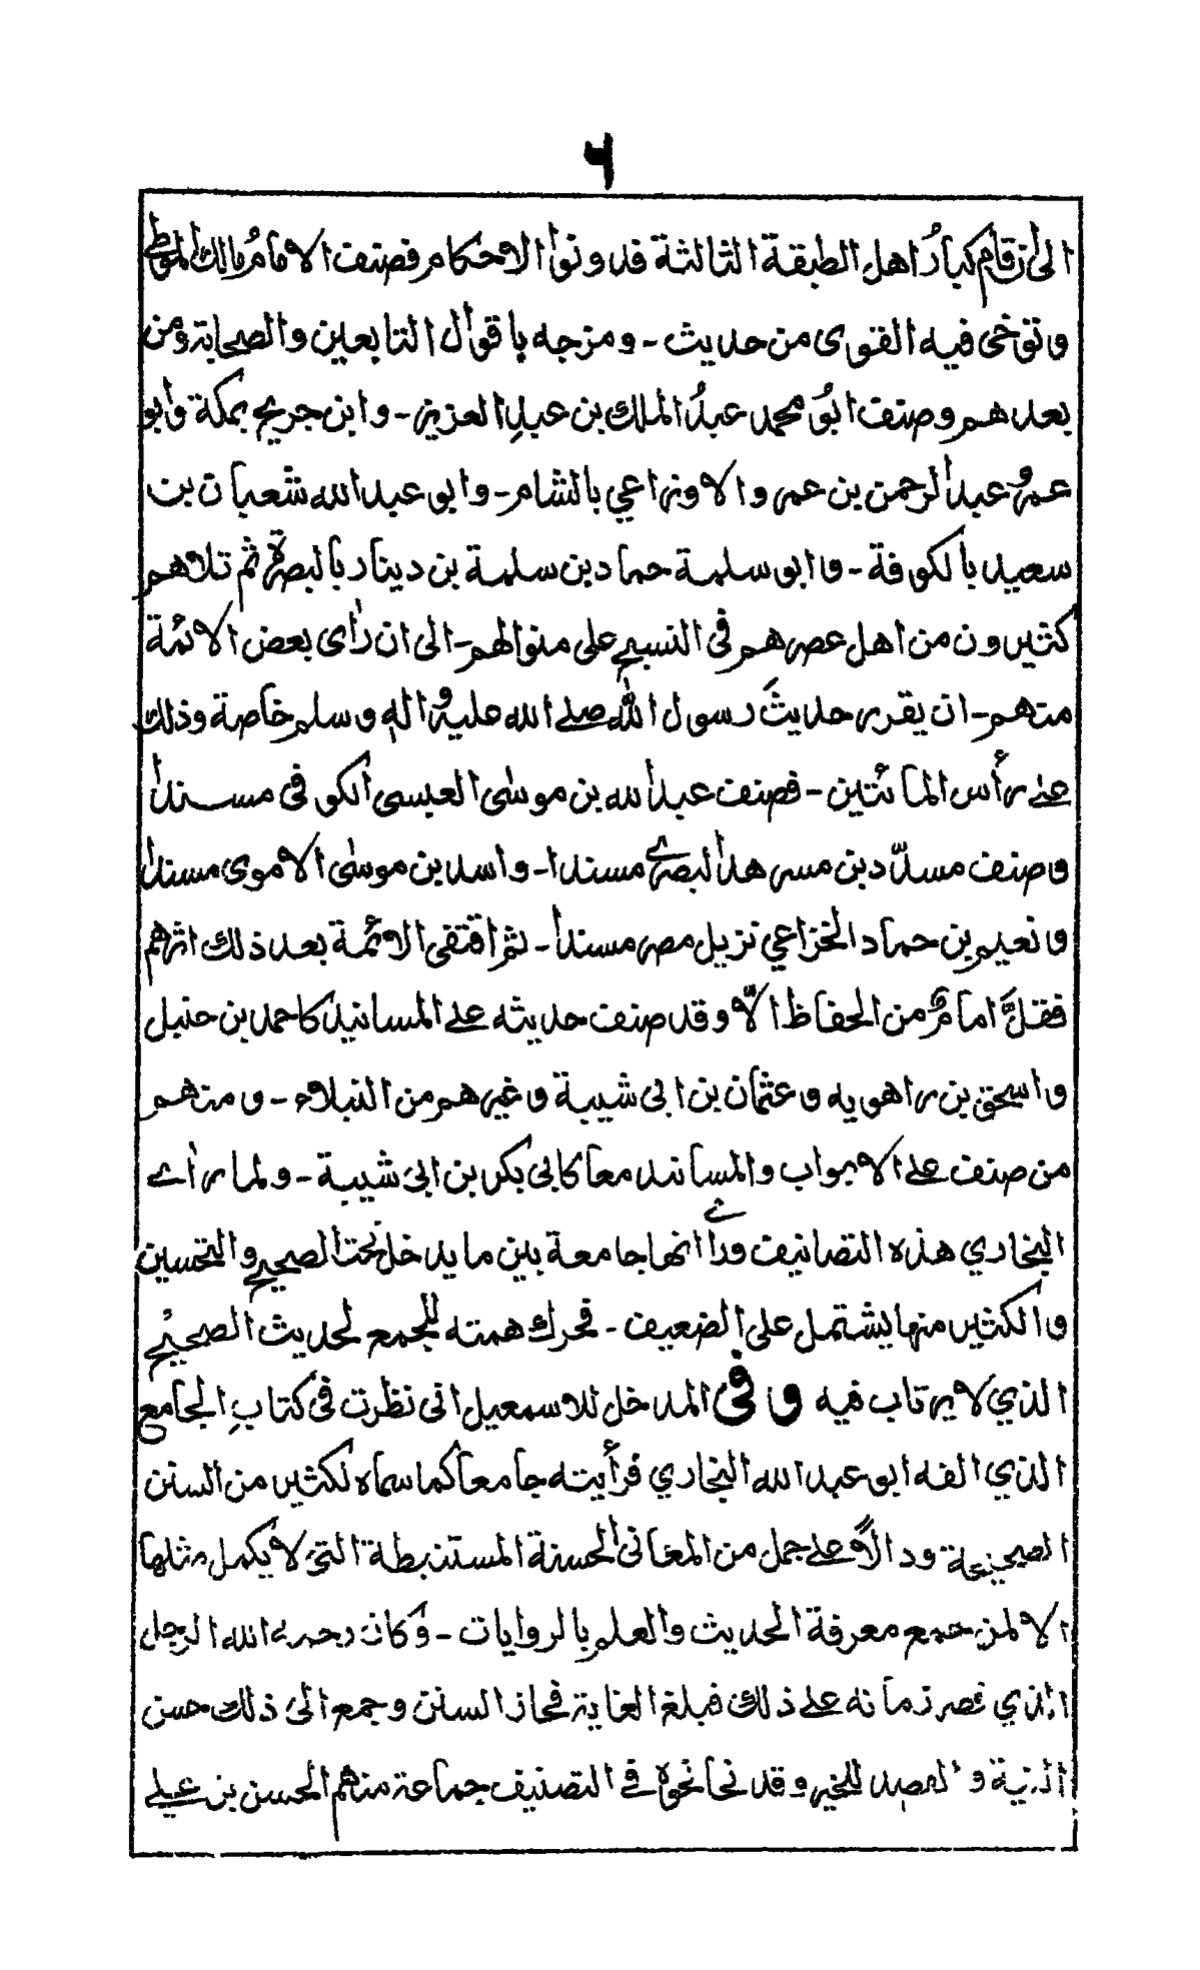 ٦
الىٰ ان قام كبارُ اهل الطبقة الثالثة فدونوا الاحكام فصنف الامامُ مالك الموطى
وتوخى فيه القوى من حديث - ومزجه باقوال التابعين والصحابة ومن
بعدهم وصنف ابوُ محمد عبدُ الملك بن عبدِ العزيز - وابن جريح بمكة وابو
عمرو عبد الرحمن بن عمر والاوزاعي بالشام - وابو عبد الله شعبان بن
سعيد بالكوفة - وابو سلمة حماد بن سلمة بن دينار بالبصرة ثم تلاهم
كثيرون من اهل عصرهم فى النسج على منوالهم - الى ان رأى بعض الائمة
منهم - ان يقرر حديثَ رسول اللهِ صلے الله عليه واله وسلم خاصة وذلك
علے رأس المائتين - فصنف عبد الله بن موسٰى العبسى الكوفى مسندا
وصنف مسدّد بن مسرهد البصرے مسندا - واسد بن موسٰى الاموى مسندا
ونعيم بن حماد الخزاعي نزيل مصر مسندا - ثم اقتفى الائمة بعد ذلك اثرهم
فقلَّ امامٌ من الحفاظ الّا وقد صنف حديثه علے المسانيد كاحمد بن حنبل
واسحق بن راهويه وعثمان بن ابى شيبة وغيرهم من النبلاء - ومنهم
من صنف علے الابواب والمساند معا كابى بكر بن ابى شيبة - ولما راے
البخاري هذه التصانيف وراے انها جامعة بين ما يدخل تحت الصحيح والتحسين
والكثير منها يشتمل على الضعيف - فحرك همته للجمع لحديث الصحيح
الذي لا يرتاب فيه وفى المدخل للاسمعيل انى نظرت فى كتابِ الجامع
الذي الفه ابو عبد الله البخاري فرأيته جامعا كما سماه لكثير من السنن
الصحيحة ودالًّا علے جمل من المعانى الحسنة المستنبطة التى لا يكمل مثلها
الا لمن جمع معرفة الحديث والعلم بالروايات - وكان رحمه الله الرجل
الذي قصر زمانه علے ذلك فبلغ الغاية فحاز السنن وجمع الى ذلك حسن
النية والقصد للخير وقد نحا نحوه فے التصنيف جماعة منهم الحسن بن علے